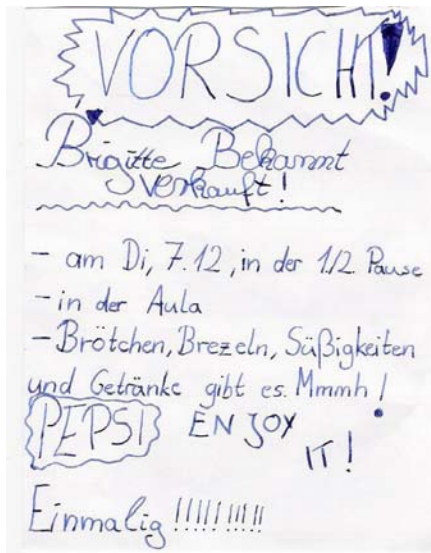 VORSICHT!
Brigitte Bekannt
verkauft!
- am Di, 7.12, in der 1./2. Pause
- in der Aula
- Brötchen, Brezeln, Süßigkeiten
und Getränke gibt es. Mmmh!
PEPSI ENJOY
IT!
Einmalig !!!!!!!!!!